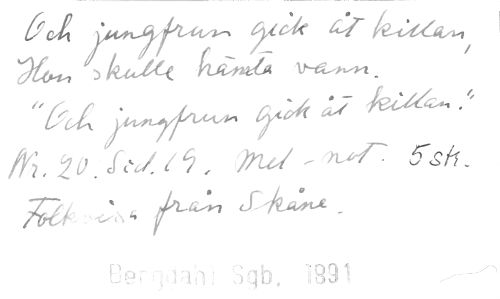 Och jungfrun gick åt killan,
Hon skulle hämta vann.
"Och jungfrun gick åt killan."
Nr. 20. Sid. 19. Mel-not. 5 str.
Folkvisa från Skåne.
Bergdahl Sgb. 1891